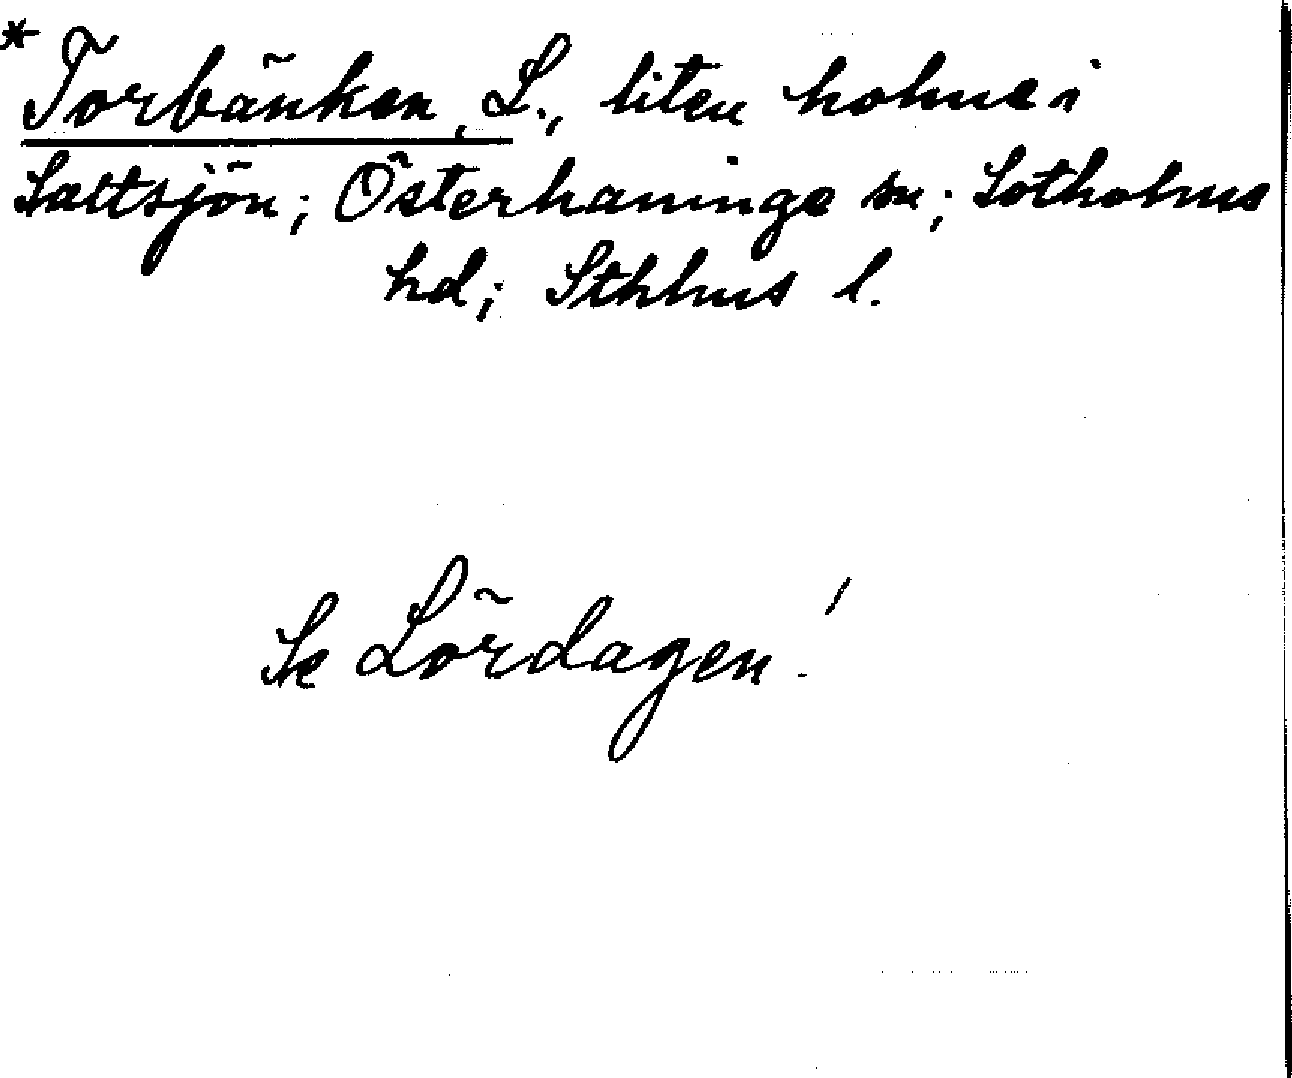 * Torbänken, L., liten holme i
Saltsjön; Österhaninge sn; Sotholms
hd; Sthlms l.
Se Lördagen!